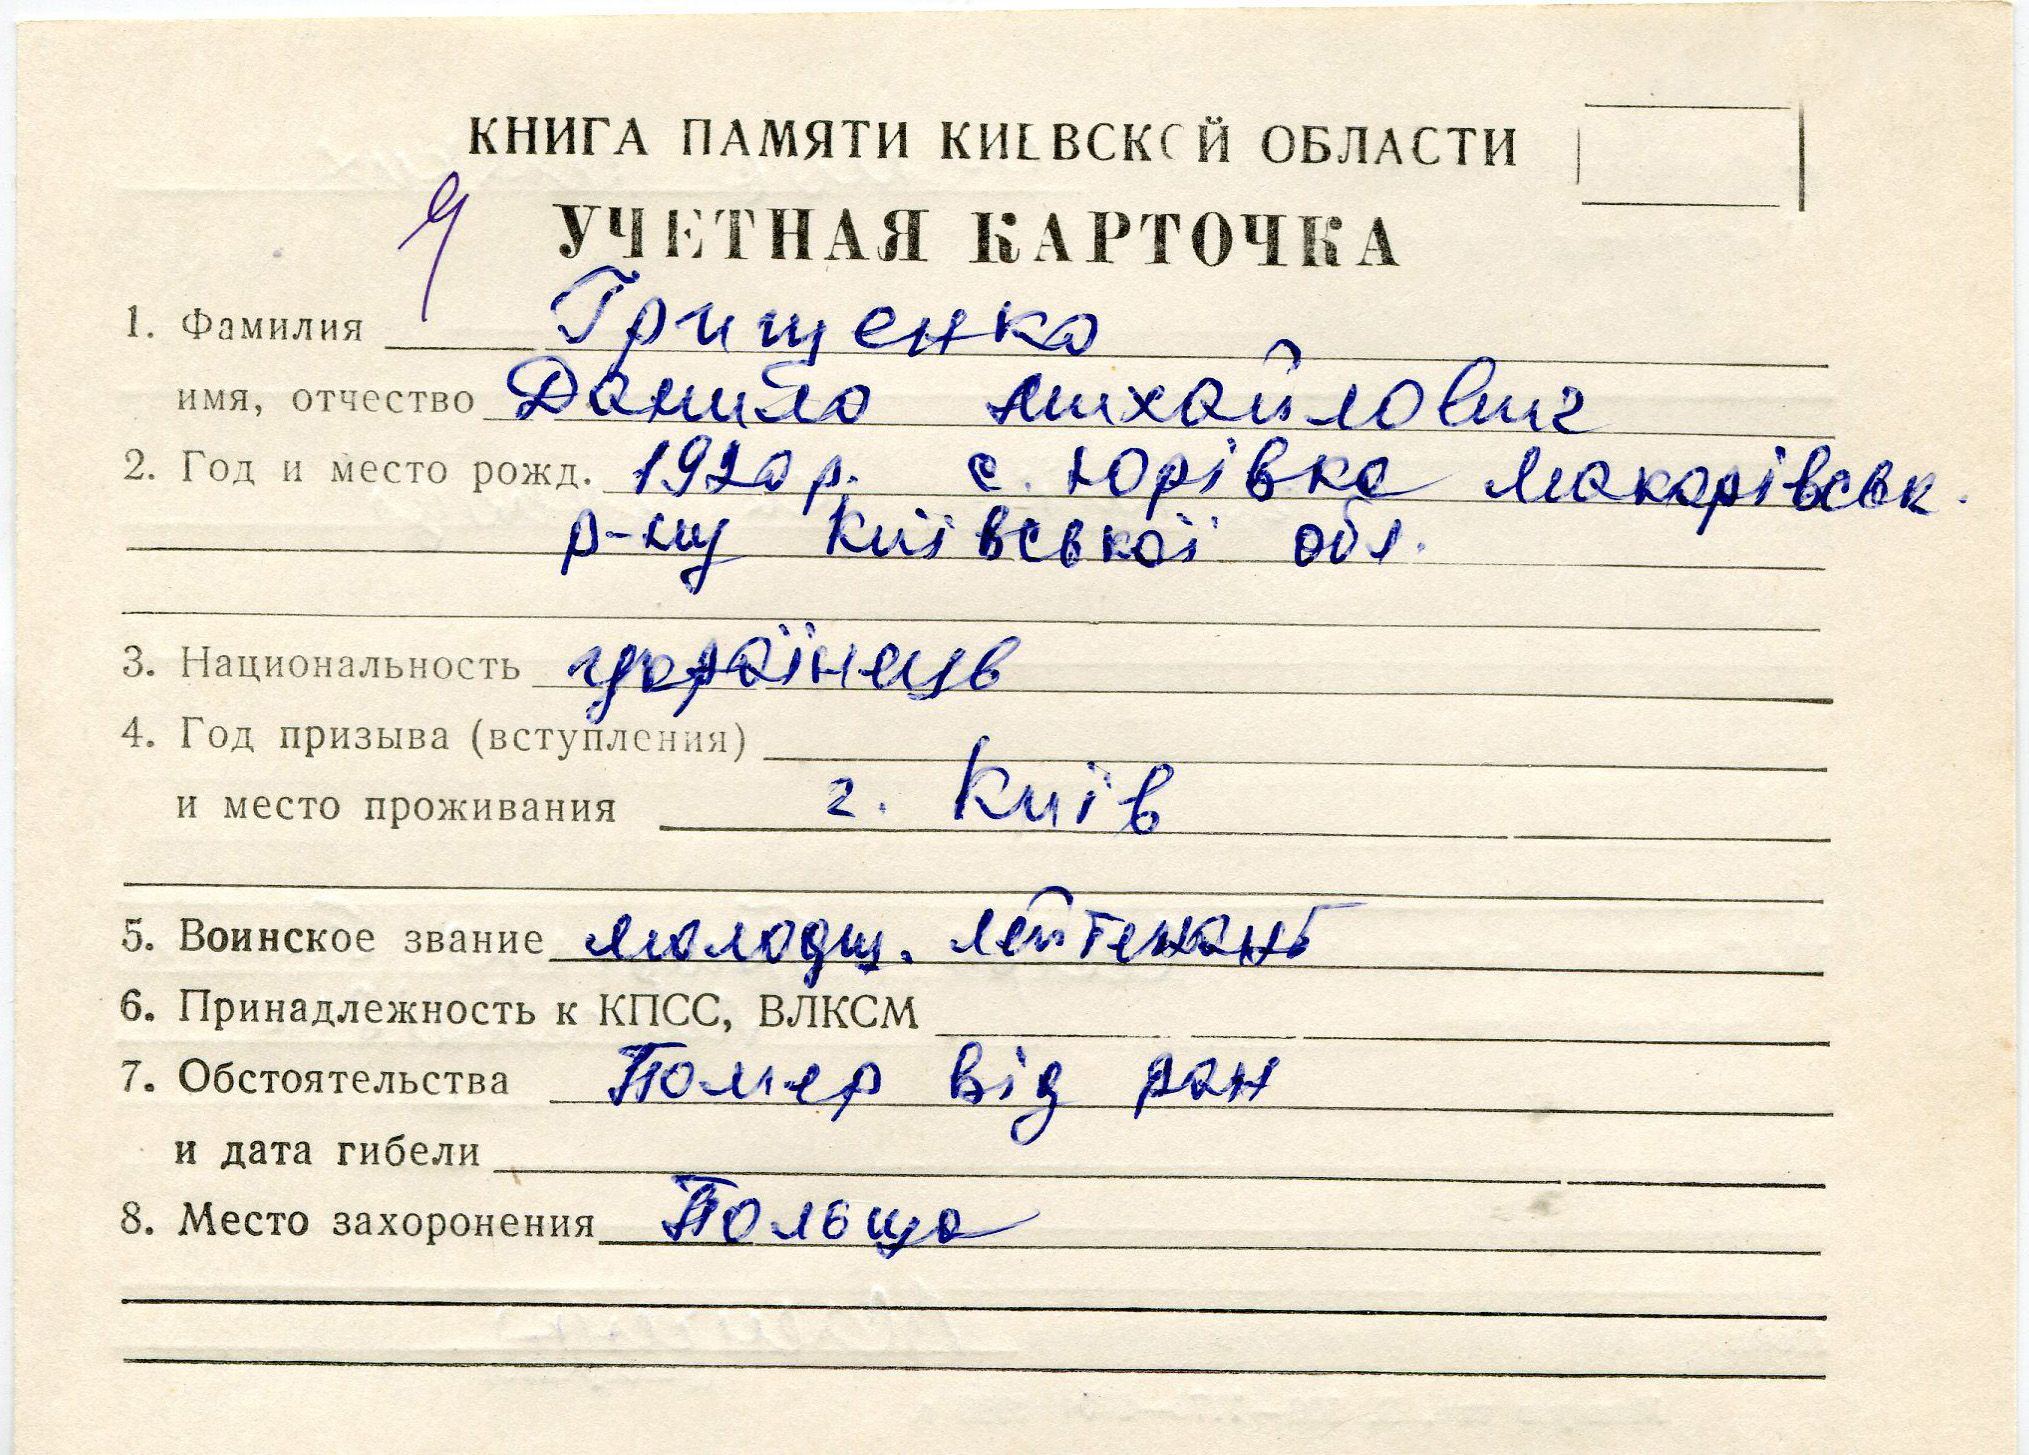 КНИГА ПАМЯТИ КИЕВСКОЙ ОБЛАСТИ
УЧЕТНАЯ КАРТОЧКА
1. Фамилия Грищенко
имя, отчество Данило Михайлович
2. Год и место рожд. 1920 р. с. Юрівка Макарівськ.
р-ну Київської обл.
3. Национальность українець
4. Год призыва (вступления)
и место проживания г. Київ
5. Воинское звание молодш. лейтенант
6. Принадлежность к КПСС, ВЛКСМ
7. Обстоятельства Помер від ран
и дата гибели
8. Место захоронения Польща